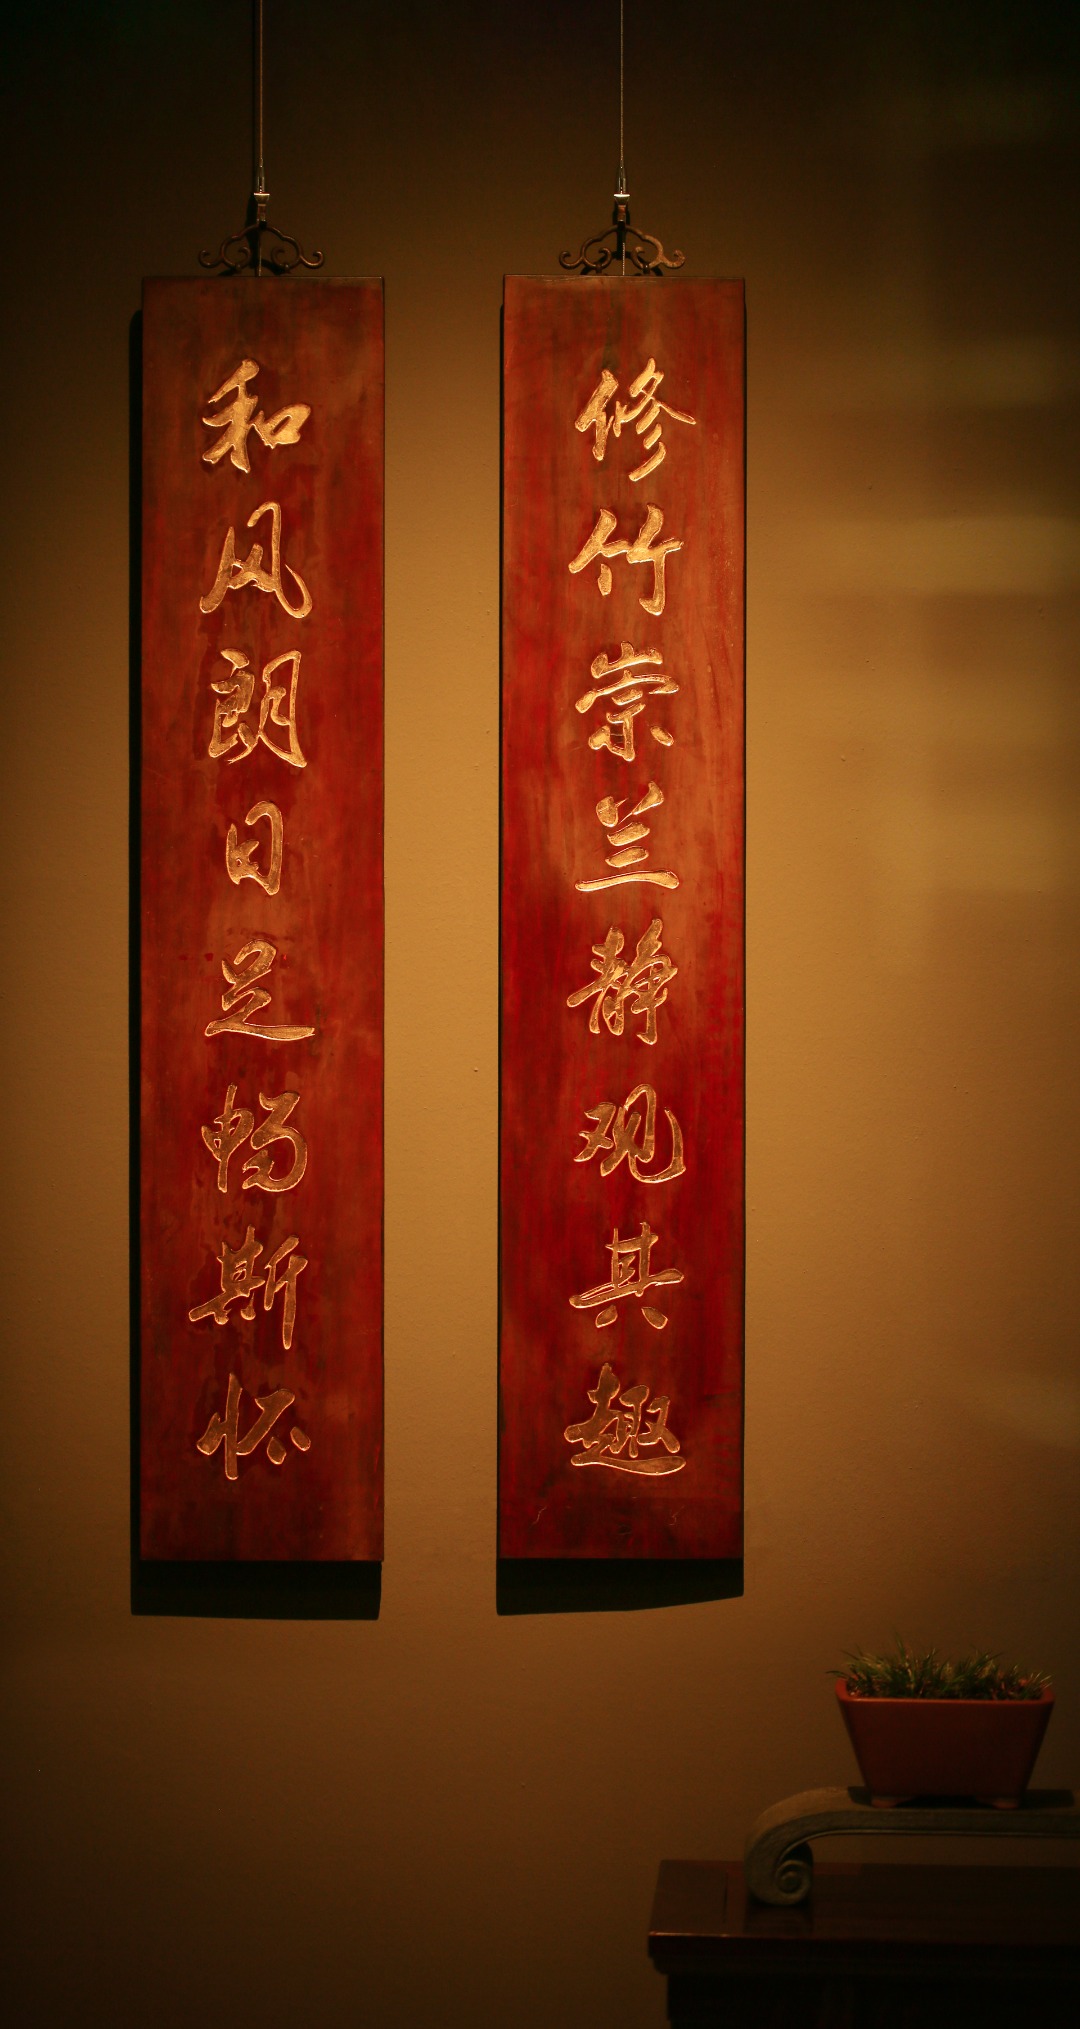 修竹崇兰静观其趣
和风朗日足畅斯怀